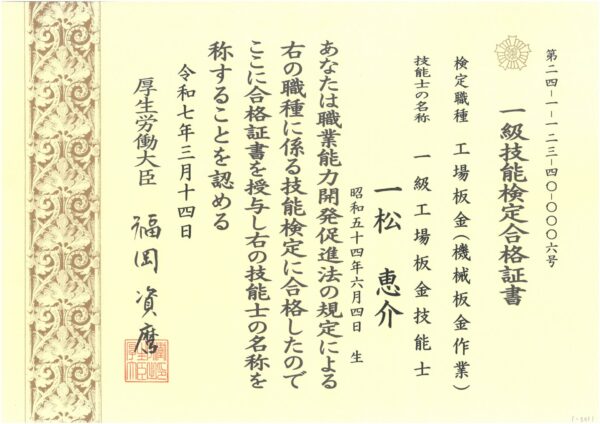 第二四-一-一二三-四〇-〇〇〇六号
一級技能検定合格証書
検定職種　工場板金(機械板金作業)
技能士の名称　一級工場板金技能士
一松　恵介
昭和五十四年六月四日　生
あなたは職業能力開発促進法の規定による
右の職種に係る技能検定に合格したので
ここに合格証書を授与し右の技能士の名称を
称することを認める
令和七年三月十四日
厚生労働大臣　福岡資麿